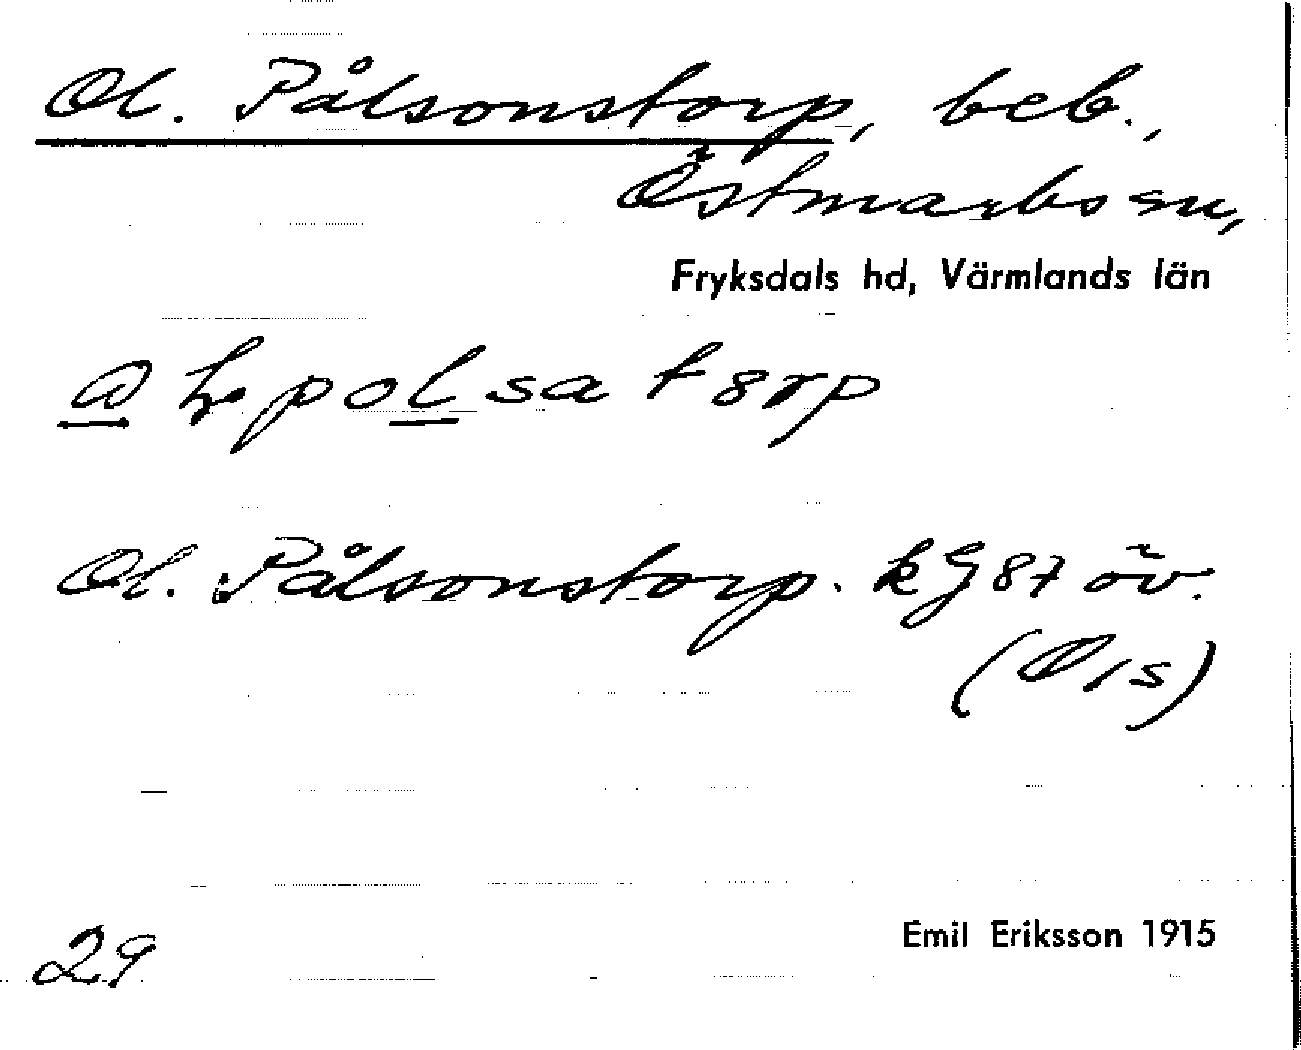 Ol. Pålsonstorp, beb.,
Östmarks sn,
Fryksdals hd, Värmlands län
polsa torp
Ol. Pålsonstorp. kg 87 öv.
29
Emil Eriksson 1915